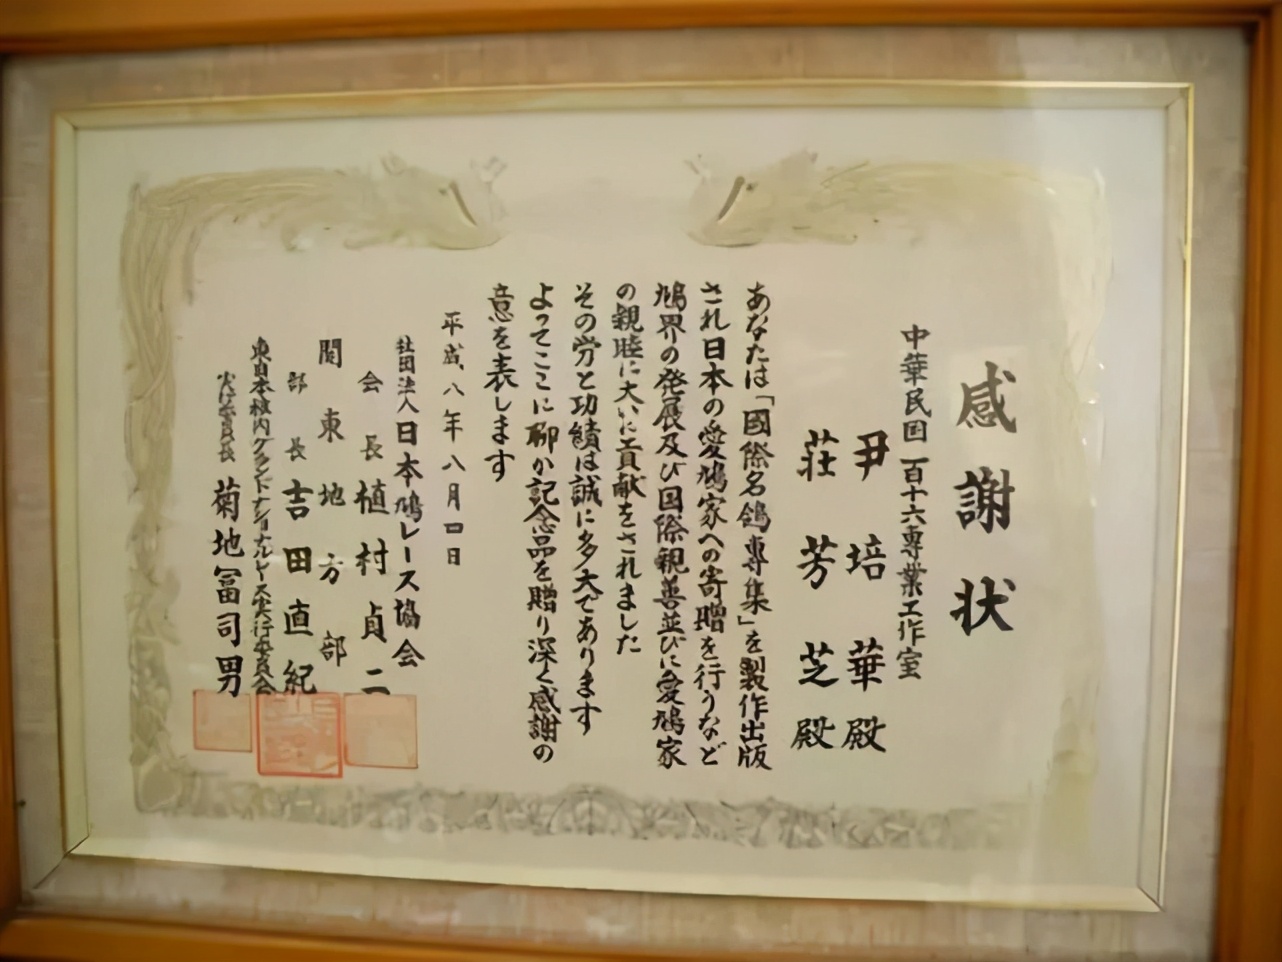 感謝状
中華民国一百十六専業工作室
尹培華殿
荘芳芝殿
あなたは「國際名鴿專集」を製作出版
され日本の愛鳩家への寄贈を行うなど
鳩界の発展及び国際親善並びに愛鳩家
の親睦に大いに貢献をされました
その労と功績は誠に多大であります
よってここに聊か記念品を贈り深く感謝の
意を表します
平成八年八月四日
社団法人日本鳩レース協会
会長植村貞二
関東地方部
部長吉田直紀
東日本稚内グランドナショナルレース実行委員会
実行委員長菊地冨司男